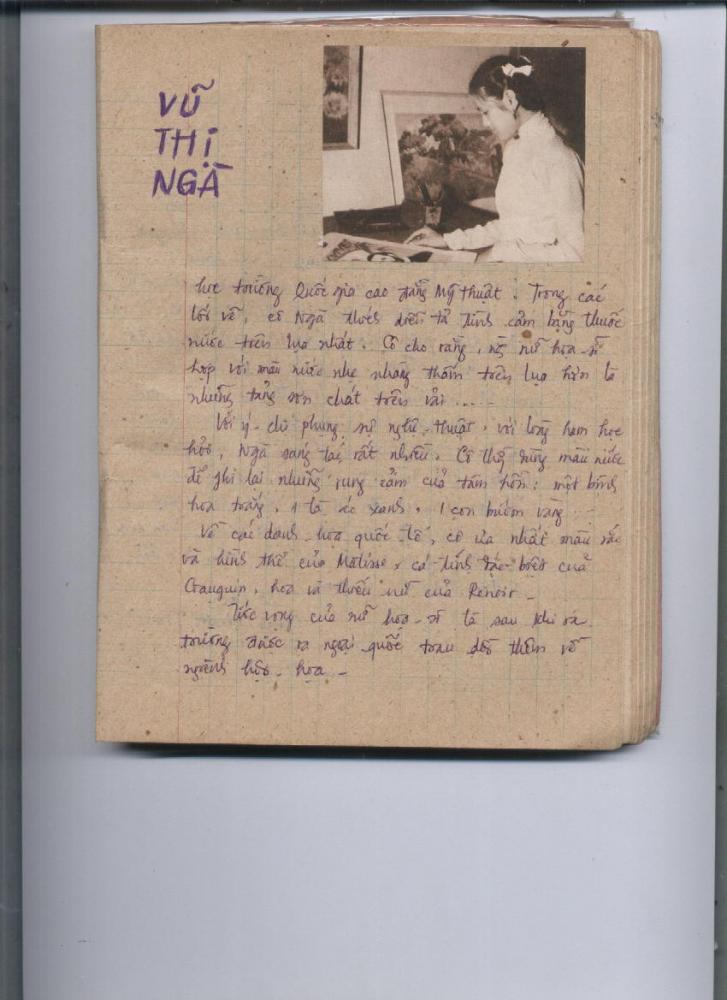 VŨ
THỊ
NGÀ
học trường Quốc gia cao đẳng Mỹ thuật. Trong các
lối vẽ, cô Ngà thích diễn tả tình cảm bằng thuốc
nước trên lụa nhất. Cô cho rằng, nữ họa-sĩ
hợp với màu nước nhẹ nhàng thấm trên lụa hơn là
những tảng sơn chát trên vải ....-
Với ý-chí phụng sự nghệ-thuật, với lòng ham học
hỏi, Ngà sáng tác rất nhiều. Cô thường dùng màu nước
để ghi lại những rung cảm của tâm hồn: một bình
hoa trắng, 1 tà áo xanh, 1 con bướm vàng...-
Về các danh-họa quốc tế, cô ưa nhất màu sắc
và hình thể của Matisse, cá tính đặc-biệt của
Gauguin, hoa và thiếu nữ của Renoir-
Ước vọng của nữ họa-sĩ là sau khi ra
trường được ra ngoại quốc trau dồi thêm về
ngành hội-họa-